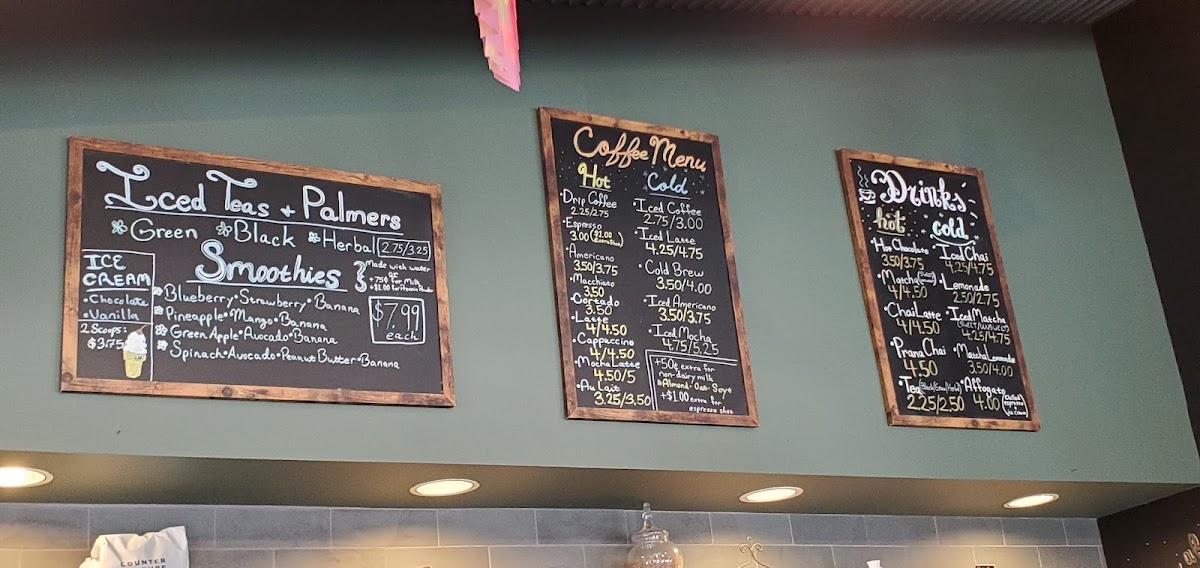 Iced Teas + Palmers
Green Black Herbal 2.75/3.25
Smoothies
Made with water
or
+75¢ for Milk
+$1.00 for Protein Powder
Blueberry • Strawberry • Banana
Pineapple • Mango • Banana
Green Apple • Avocado • Banana
Spinach • Avocado • Peanut Butter • Banana
$7.99
each
ICE
CREAM
• Chocolate
• Vanilla
2 Scoops:
$3.75
Coffee Menu
Hot
• Drip Coffee
2.25/2.75
• Espresso
3.00 ($1.00
Extra Shot)
• Americano
3.50/3.75
• Macchiato
3.50
• Cortado
3.50
• Latte
4/4.50
• Cappuccino
4/4.50
• Mocha Latte
4.50/5
• Au Lait
3.25/3.50
Cold
• Iced Coffee
2.75/3.00
• Iced Latte
4.25/4.75
• Cold Brew
3.50/4.00
• Iced Americano
3.50/3.75
• Iced Mocha
4.75/5.25
+50¢ extra for
non-dairy milk
*Almond • Oat • Soy*
+$1.00 extra for
espresso shot
Drinks
hot
• Hot Chocolate
3.50/3.75
• Matcha
4/4.50
• Chai Latte
4/4.50
• Prana Chai
4.50
• Tea (Black/Green/Herbal)
2.25/2.50
cold
• Iced Chai
4.25/4.75
• Lemonade
2.50/2.75
• Iced Matcha
(SWEET/UNSWEET)
4.25/4.75
• Matcha Lemonade
3.50/4.00
• Affogato
4.00 (chilled
espresso
ice cream)
COUNTER